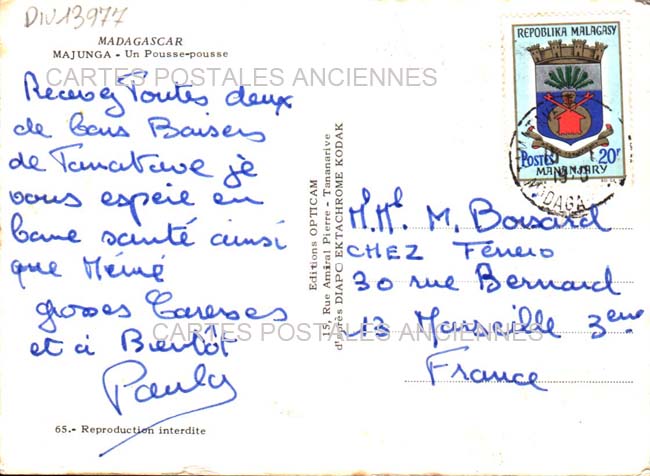 DIV13977
MADAGASCAR
MAJUNGA - Un Pousse-pousse
CARTES POSTALES ANCIENNES
Recevez Toutes deux
de bons Baisers
de Tamatave je
vous espère en
bonne santé ainsi
que Mémé
grosses Caresses
et à Bientôt
65.- Reproduction interdite
Editions OPTICAM
15, Rue Amiral Pierre - Tananarive
d'après DIAPC EKTACHROME KODAK
REPOBLIKA MALAGASY
POSTES 20F
MANANJARY
M. Boisard
CHEZ Ferrero
30 rue Bernard
13 Marseille 3eme
France
CARTES POSTALES ANCIENNES